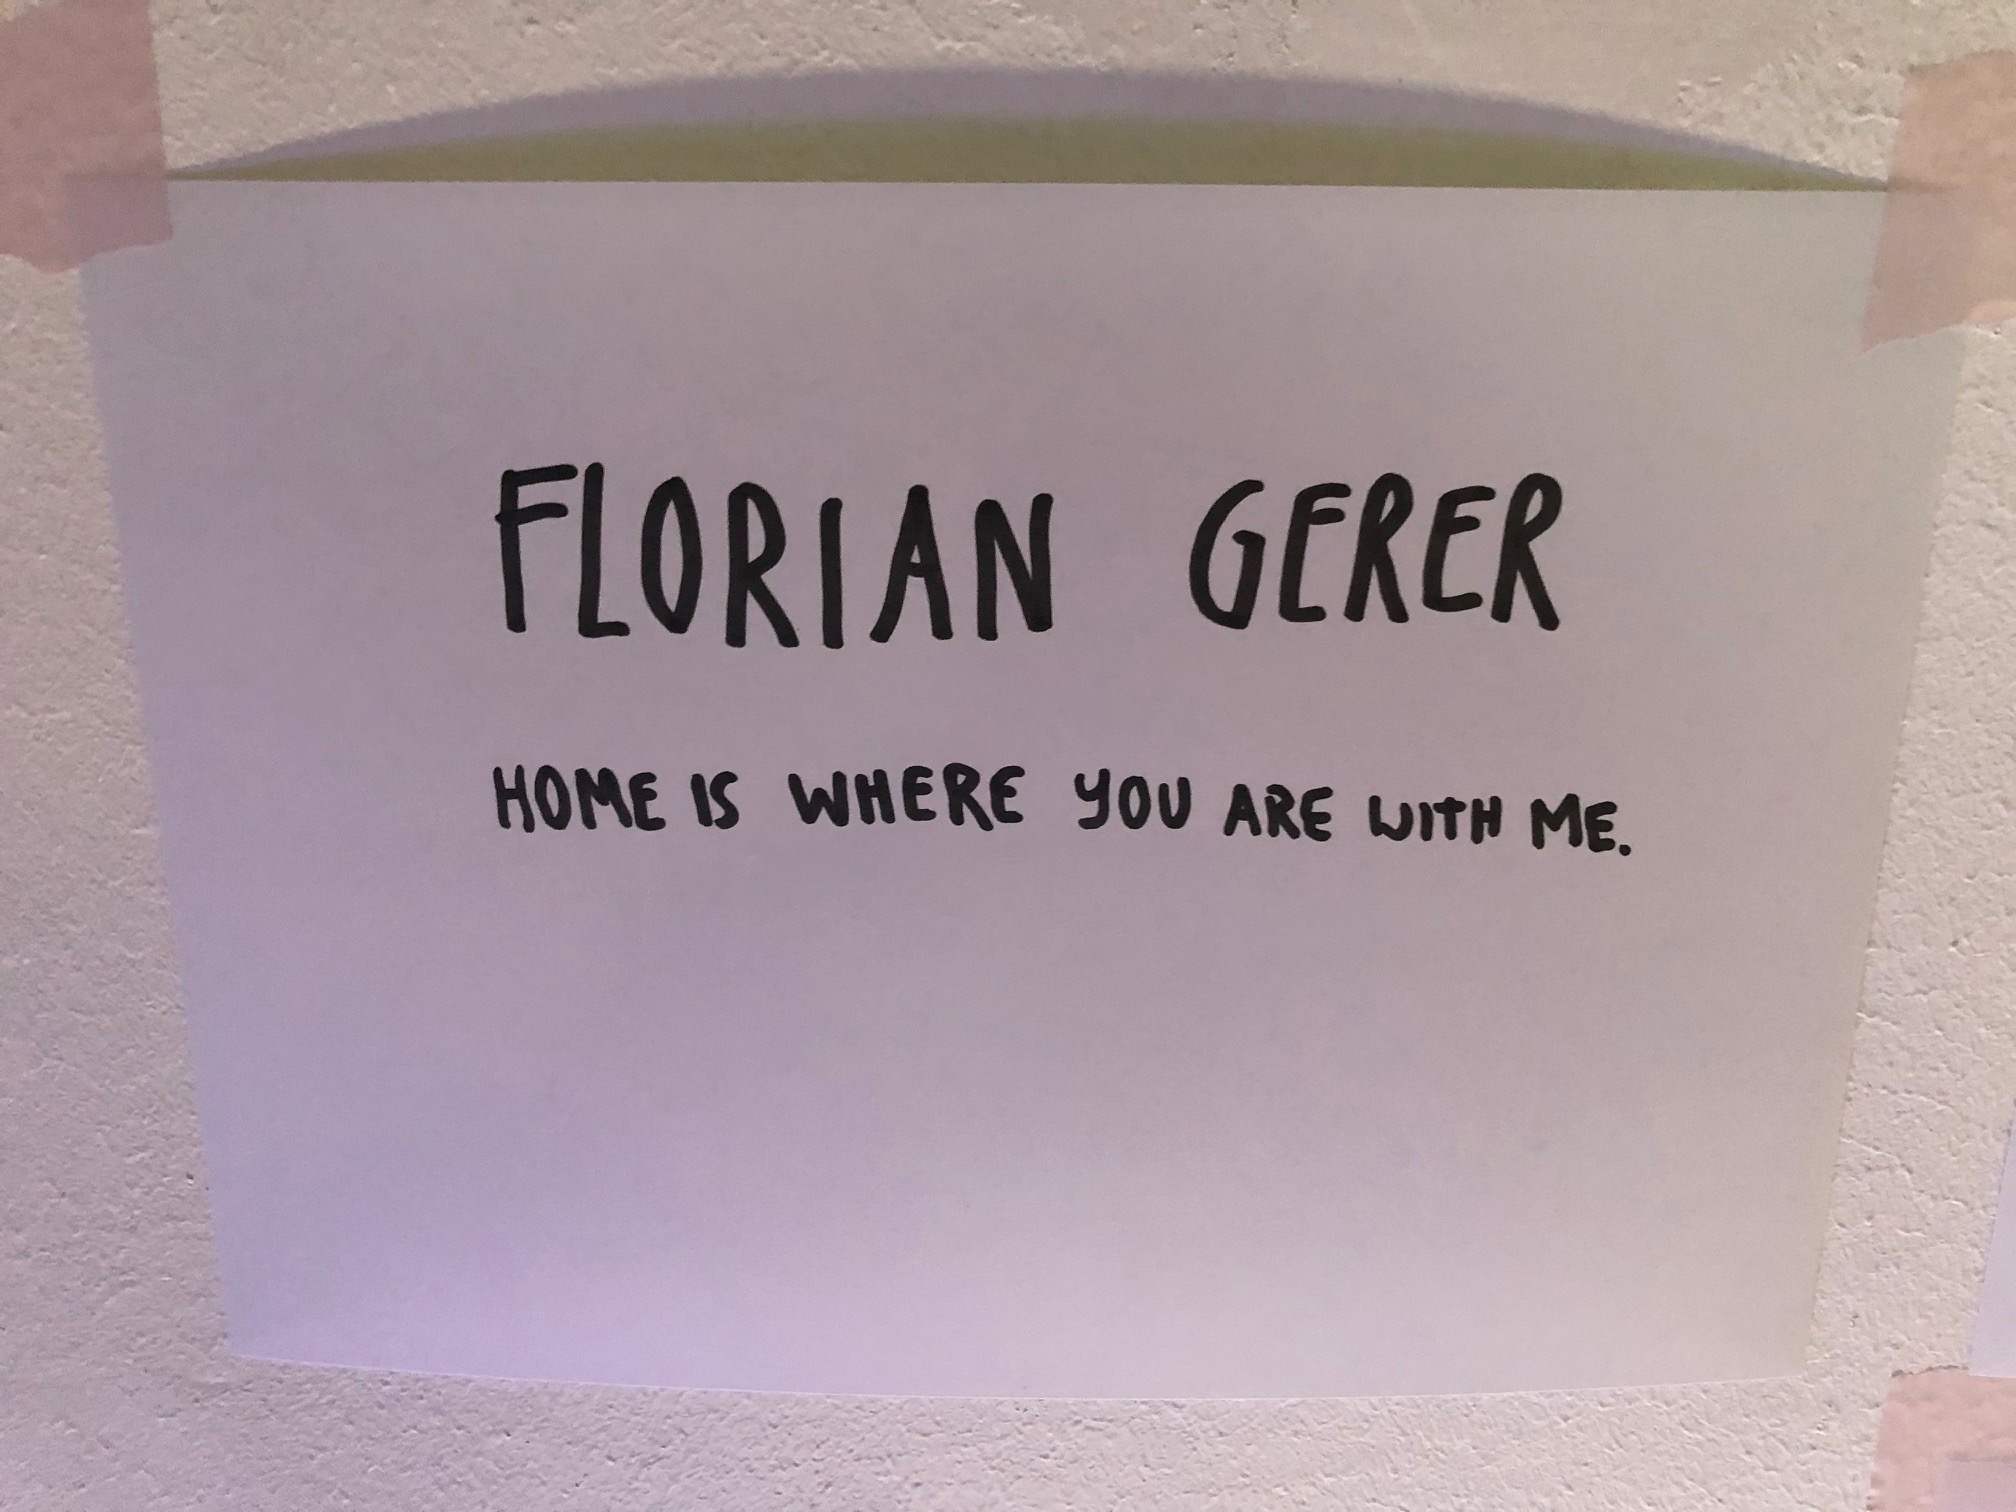 FLORIAN GERER
HOME IS WHERE YOU ARE WITH ME.